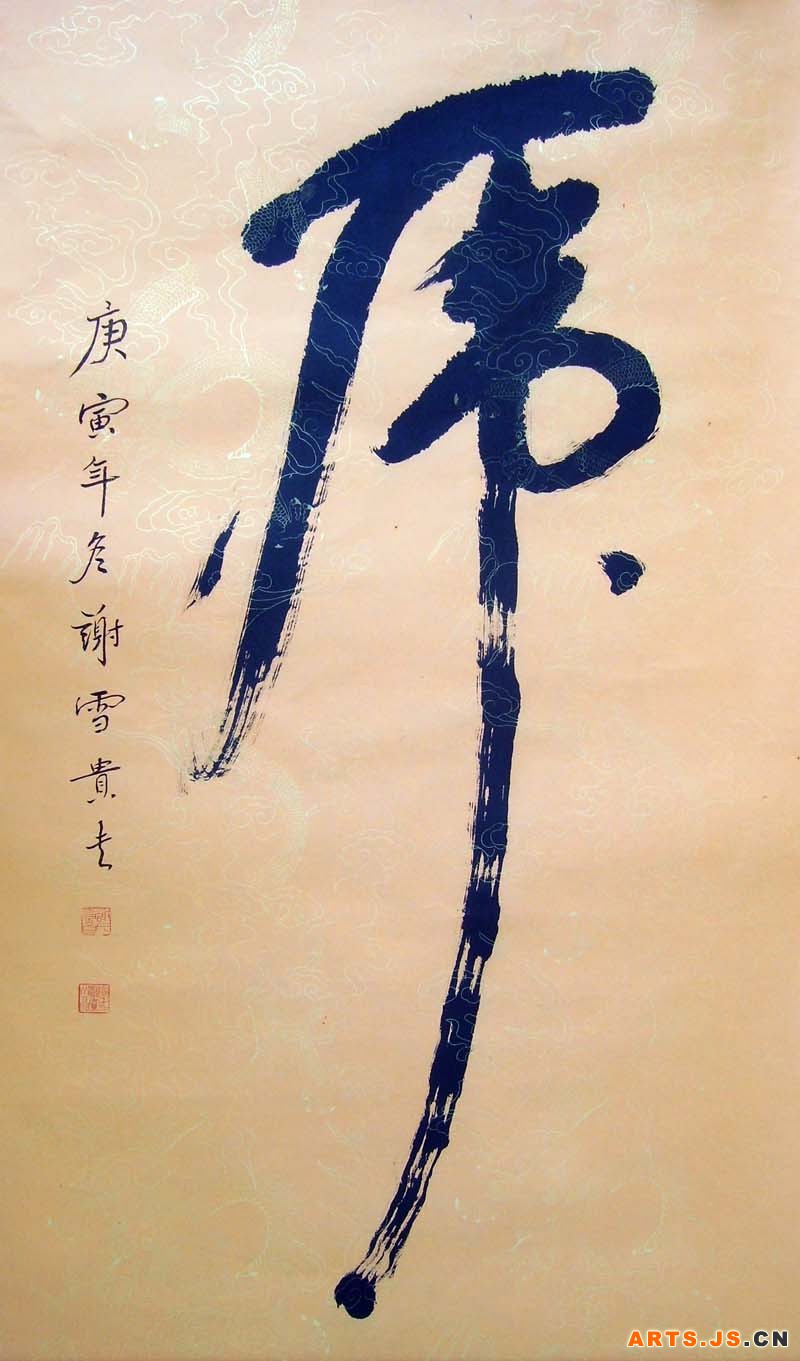 虎
庚寅年冬謝雪貴书
ARTS.JS.CN